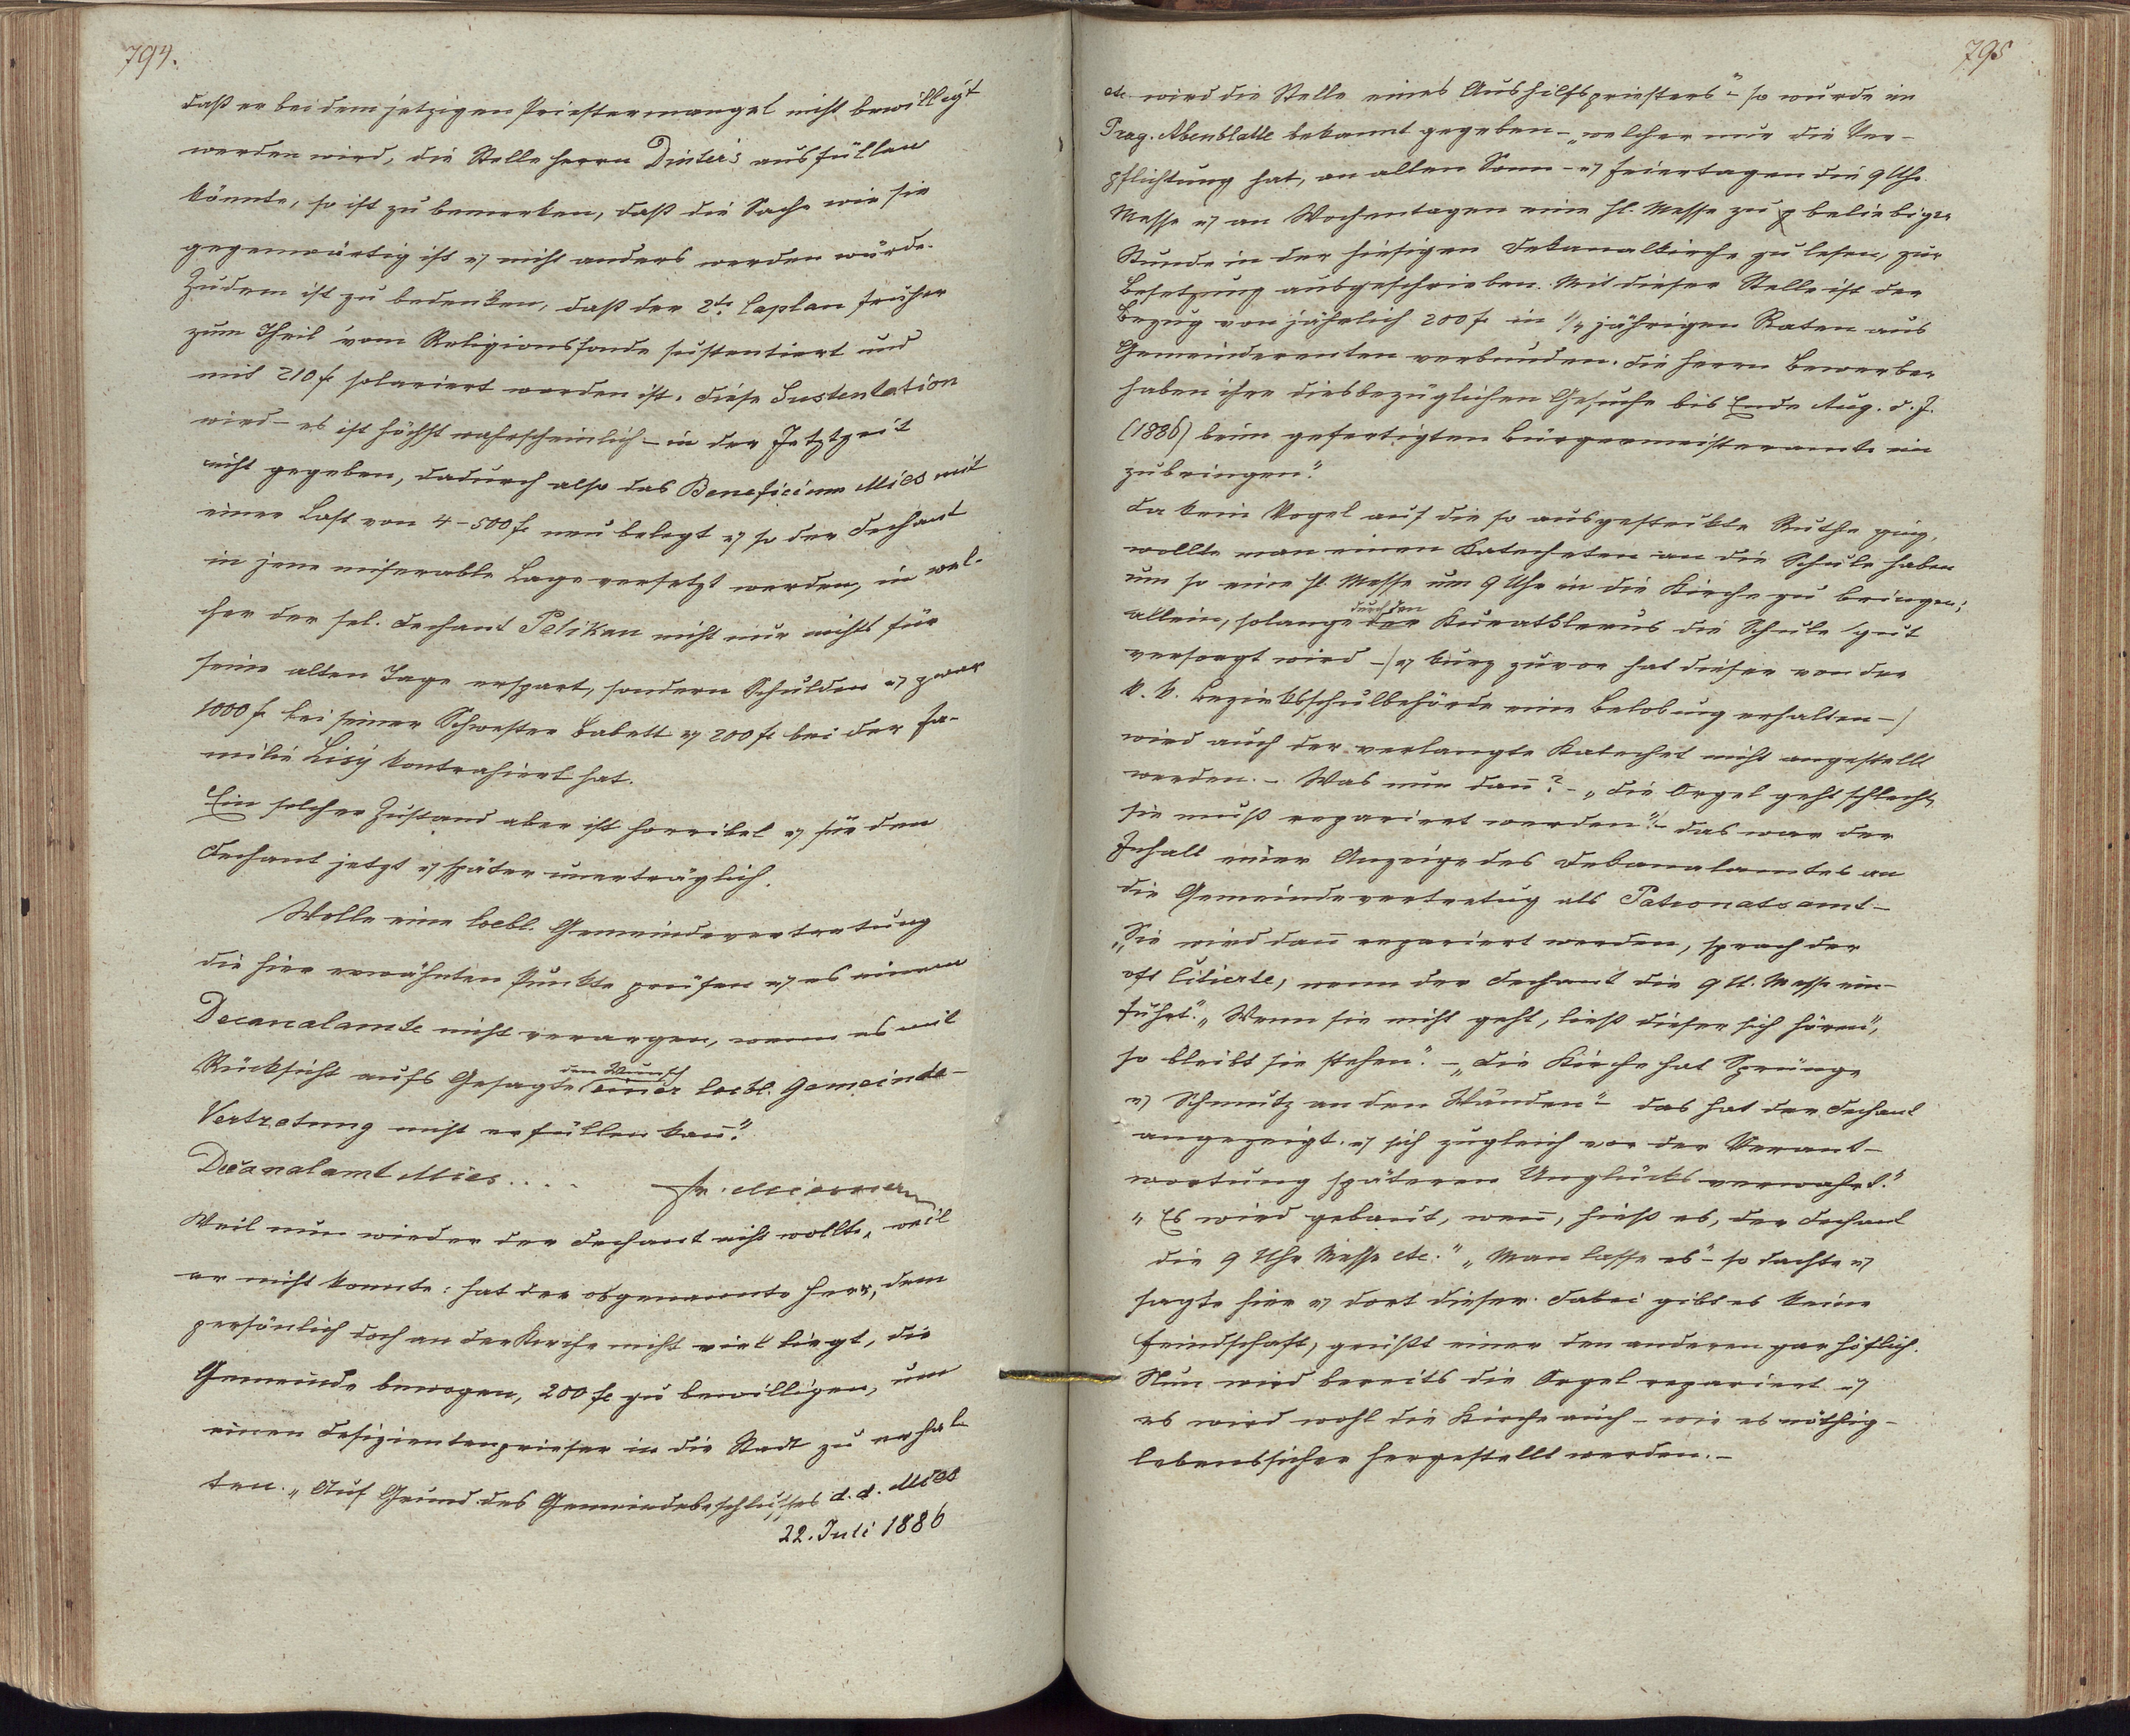 794.
daß er bei dem jetzigen Priestermangel nicht bewilligt
werden wird, die Stelle Herrn Dinter's ausfüllen
könnte, so ist zu bemerken, daß die Sache wie sie
gegenwärtig ist u. nicht anders werden würde.
Zudem ist zu bedenken, daß der 2te Caplan früher
zum Theil vom Religionsfonde sustentiert und
mit 210 f. solariert worden ist. Diese Sustentation
wird – es ist höchst wahrscheinlich – in der Jetztzeit
nicht gegeben, dadurch also das Beneficium Mies mit
einer Last von 4–500 f. neu belegt u. so der Dechant
in jene miserable Lage versetzt werden, in wel-
cher der sel. Dechant Pelikan nicht nur nichts für
seine alten Tage erspart, sondern Schulden u. zwar
1000 f. bei seiner Schwester Babett u. 200 f. bei der Fa-
milie Lisý kontrahiert hat.
Ein solcher Zustand aber ist horribel u. für den
Dechant jetzt u. später unerträglich.
Wolle eine loebl. Gemeindevertretung
die hier erwähnten Punkte prüfen u. es einem
Decanalamte nicht verargen, wenn es mit
Rücksicht aufs Gesagte den Wunsch einer loebl. Gemeinde-
Vertretung nicht erfüllen kann."
Decanalamt Mies . . . . Fr.
Weil nun wieder der Dechant nicht wollte, weil
er nicht konnte: hat der obgenannte Herr, dem
persönlich doch an der Kirche nicht viel liegt, die
Gemeinde bewogen, 200 f. zu bewilligen, um
einen Defizientenpriester in die Stadt zu erhal-
ten. „Auf Grund des Gemeindebeschlusses d. d. Mies
22. Juli 1886
795
etc. wird die Stelle eines Aushilfspriesters" – so wurde im
Prag. Abenblatte bekannt gegeben – „welcher nur die Ver-
pflichtung hat, an allen Sonn- u. Feiertagen die 9 Uhr
Messe u. an Wochentagen eine hl. Messe zu beliebiger
Stunde in der hiesigen Dekanalkirche zu lesen, zur
Besetzung ausgeschrieben. Mit dieser Stelle ist der
Bezug von jährlich 200 f. in 1/4 jährigen Raten aus
Gemeinderenten verbunden. Die Herrn Bewerber
haben ihre diesbezüglichen Gesuche bis Ende Aug. d. J.
(1886) beim gefertigten Bürgermeisteramte ein
zubringen."
Da kein Vogel auf die so ausgesteckte Ruthe ging,
wollte man einen Katecheten an die Schule haben
um so eine hl. Messe um 9 Uhr in die Kirche zu bringen;
allein, solange durch den Kuratklerus die Schule gut
versorgt wird – /u. kurz zuvor hat dieser von der
k. k. Bezirksschulbehörde eine Belobung erhalten –/
wird auch der verlangte Katechet nicht angestellt
werden. – Was nun dann? – „Die Orgel geht schlecht,
sie muß repariert werden"! – das war der
Inhalt einer Anzeige des Dekanalamtes an
die Gemeindevertretug als Patronatsamt –
„Sie wird dann repariert werden, sprach der
oft Citierte, wenn der Dechant die 9 U. Messe ein-
führt." „Wenn sie nicht geht, ließ dieser sich hören",
so bleibt sie stehen." – „Die Kirche hat Sprünge
u. Schmutz an den Wänden" – das hat der Dechant
angezeigt. u. sich zugleich vor der Verant-
wortung späteren Unglücks verwahrt."
„Es wird gebaut, wenn, hieß es, der Dechant
die 9 Uhr Messe etc." „Man lasse es" – so dachte u.
sagte hier u. dort dieser. Dabei gibt es keine
Feindschaft, grüßt einer den anderen gar höflich.
Nun wird bereits die Orgel repariert u.
es wird wohl die Kirche auch – wie es nöthig –
lebenssicher hergestellt werden. –